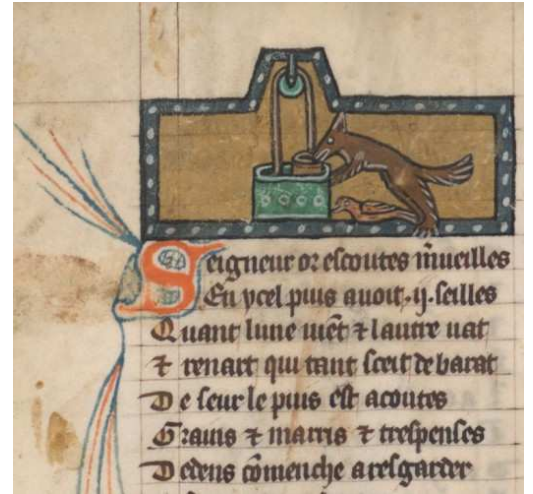 Seigneur or escoutes m̃ueilles
En ycel puis auoit .ij. seilles
Quant lune uiẽt ⁊ lautre uat
⁊ renart qui tant sceit de barat
De seur le puis est acoutes
Grains ⁊ marris ⁊ trespenses
Dedens cõmenche a resgarder